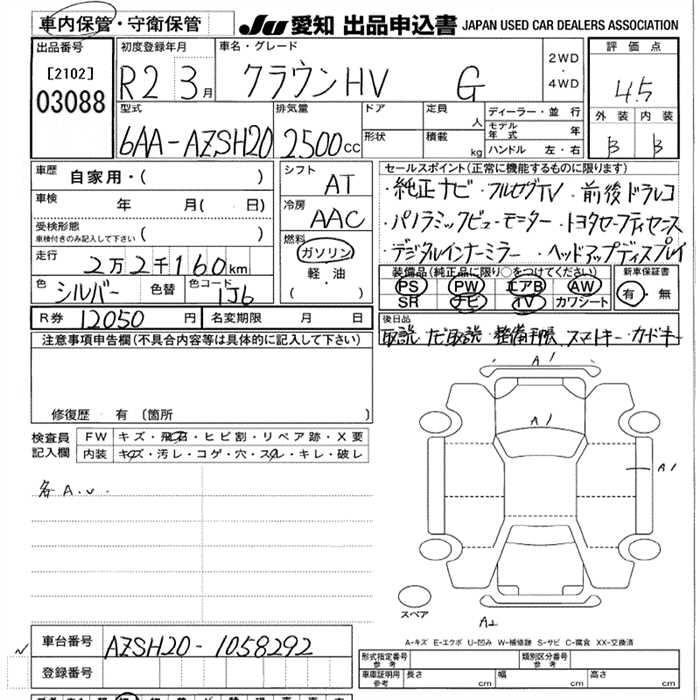 車内保管・守衛保管 JU 愛知 出品申込書 JAPAN USED CAR DEALERS ASSOCIATION
出品番号 初度登録年月 車名・グレード 評価点
[2102] R2 3月 クラウンHV G 2WD・4WD 4.5
03088 型式 排気量 ドア 定員 ディーラー・並行 外装 内装
6AA-AZSH20 2500cc 人 モデル年式 年 B B
形状 積載 kg ハンドル 左・右
車歴 自家用・( ) シフト AT セールスポイント(正常に機能するものに限ります)
車検 年 月( 日) 冷房 AAC ・純正ナビ・フルセグTV・前後ドラレコ
受検形態 ( ) ・パノラミックビューモニター・トヨタセーフティセンス
車検付きのみ記入して下さい 燃料 ガソリン ・デジタルインナーミラー・ヘッドアップディスプレイ
走行 2万2千160km 軽・油 装備品(純正品に限り○をつけてください) 新車保証書
色 シルバー 色替 色コード 1J6 ( ) PS PW エアB AW 有・無
SR ナビ TV カワシート
R券 12050円 名変期限 月 日 後日品
取説 ナビ取説 整備手帳 スマートキー カードキー
注意事項申告欄(不具合内容等は具体的に記入して下さい)
修復歴 有 〔箇所 〕
検査員記入欄 FW キズ・飛石・ヒビ割・リペア跡・X要
内装 キズ・汚レ・コゲ・穴・スレ・キレ・破レ
各A.U.
A1
A1
A1
スペア
A2
A-キズ E-エクボ U-凹み W-補修跡 S-サビ C-腐食 XX-交換済
車台番号 AZSH20-1058292
登録番号
形式指定番号 参考 類別区分番号 参考
車庫証明用 参考 長さ cm 幅 cm 高さ cm